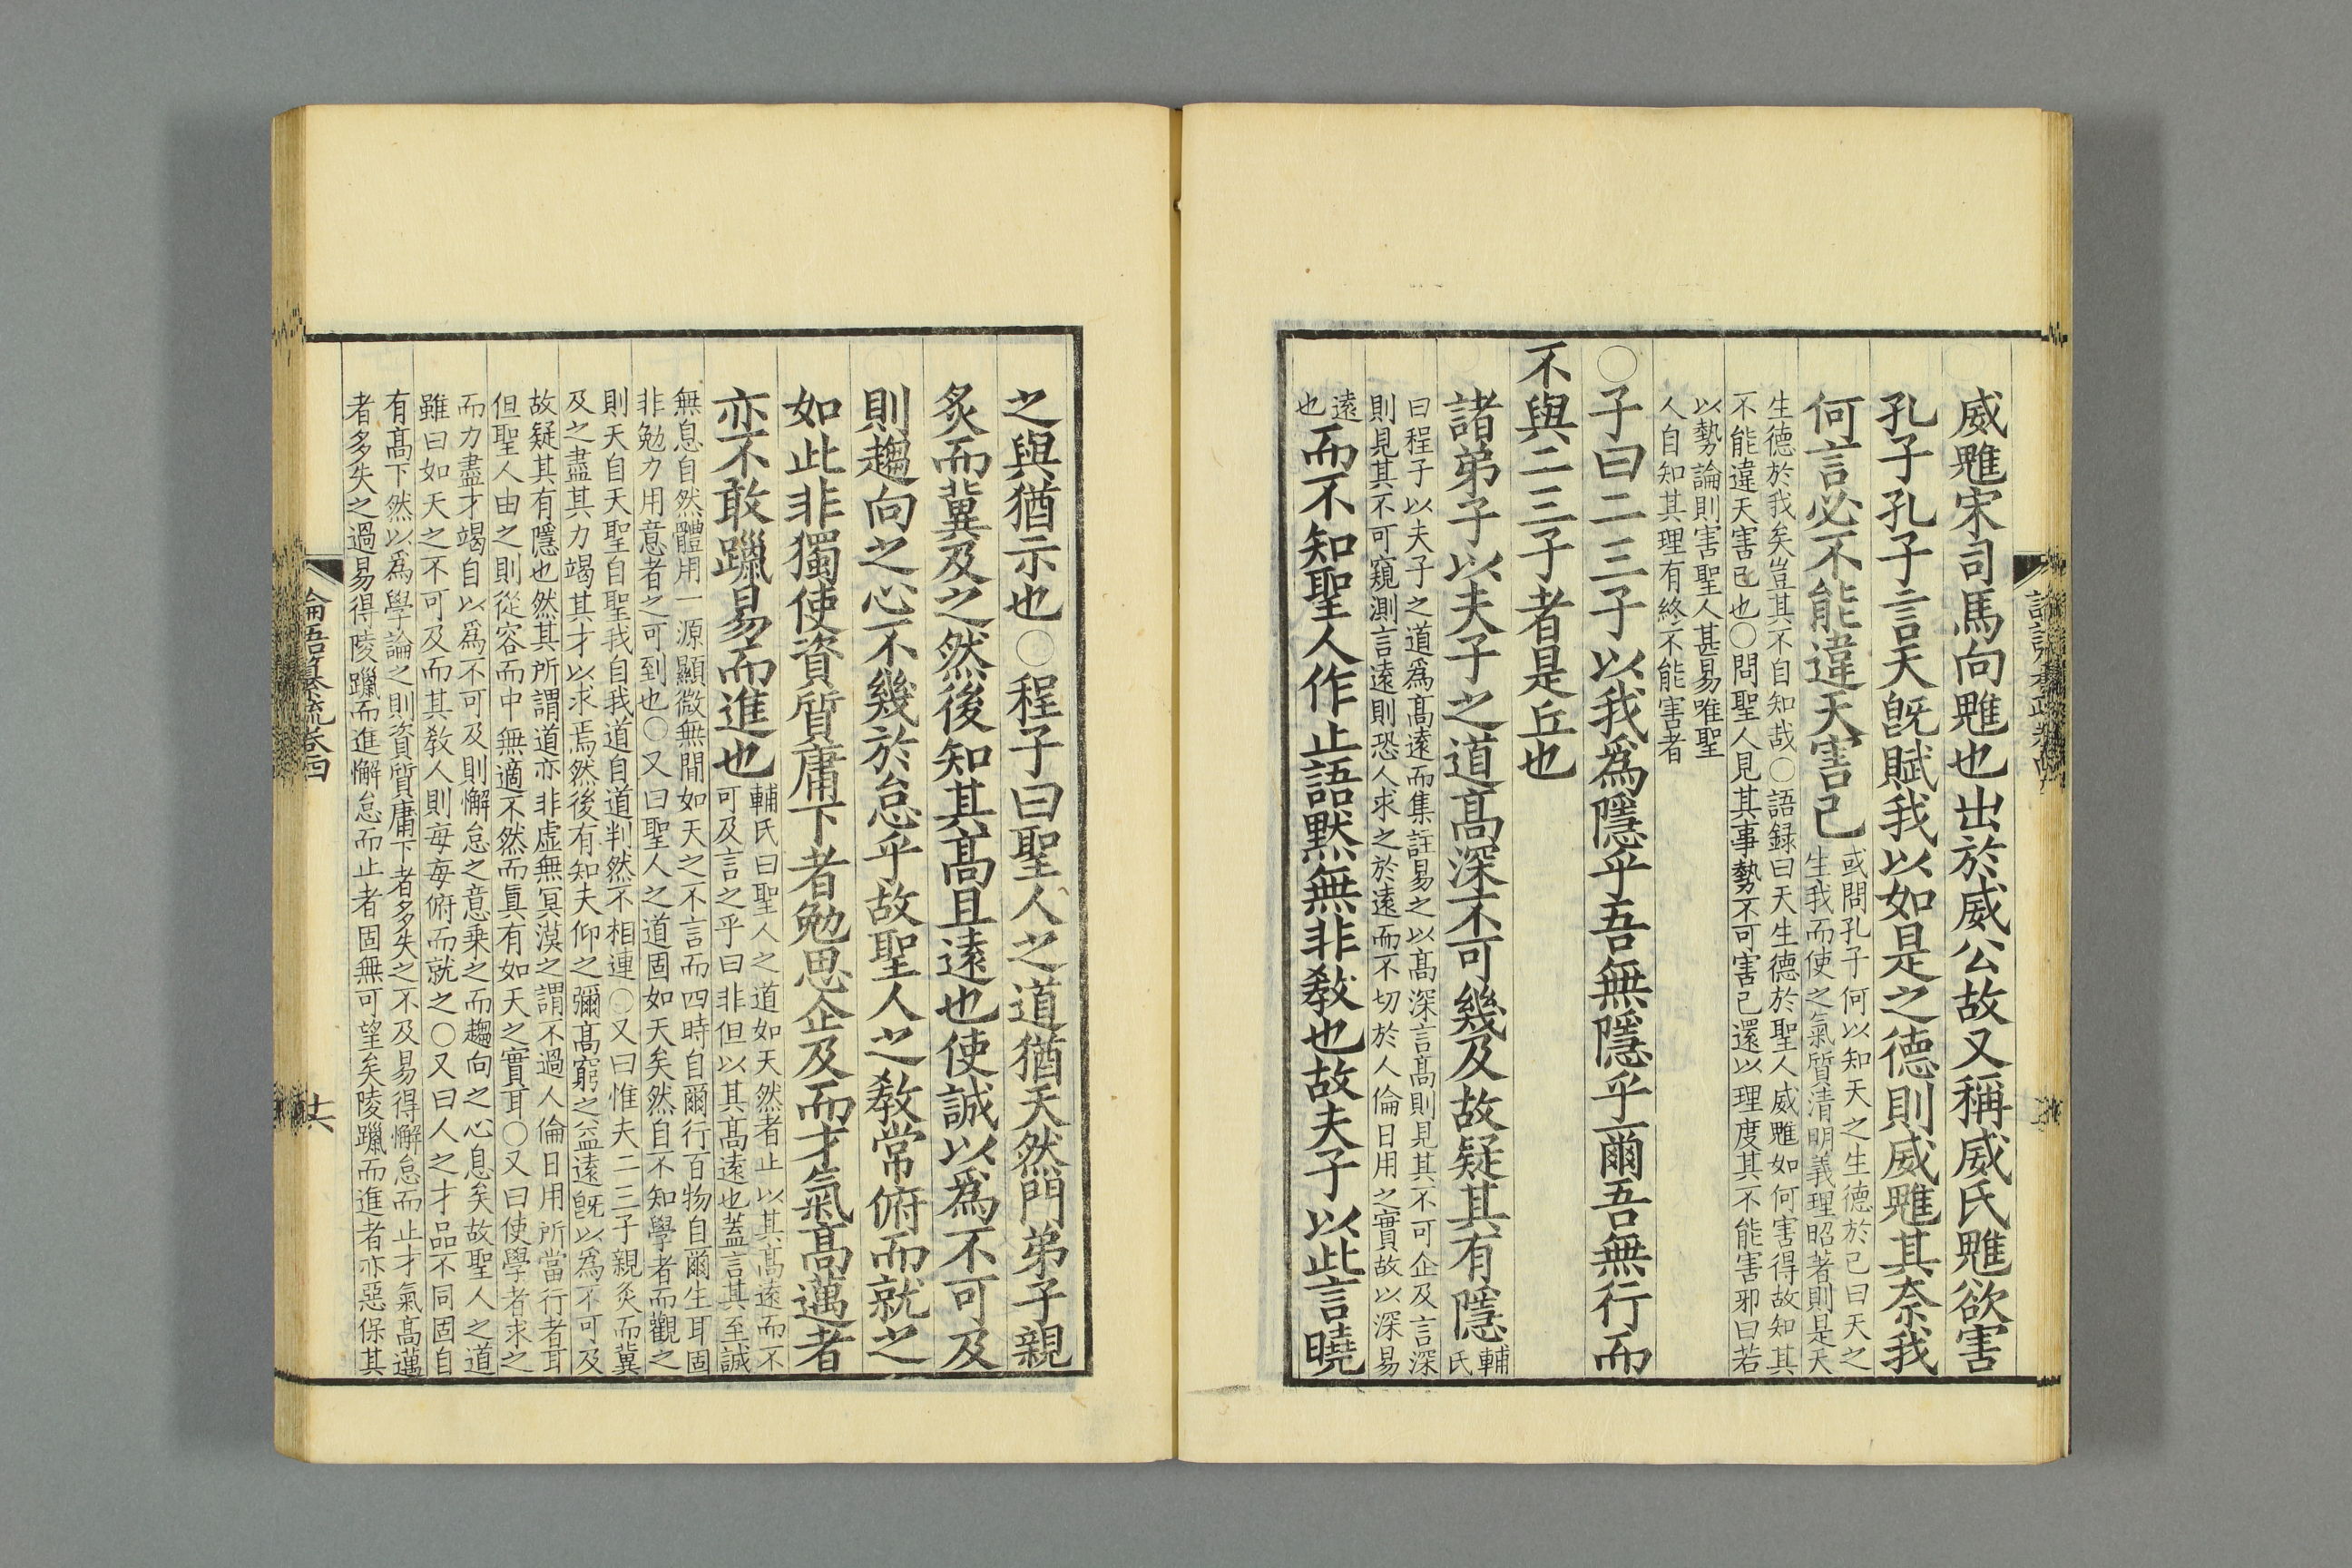 威魋宋司馬向魋也出於威公故又稱威氏魋欲害
孔子孔子言天旣賦我以如是之德則威魋其奈我
何言必不能違天害己
或問孔子何以知天之生德於己曰天之
生我而使之氣質清明義理昭著則是天
生德於我矣豈其不自知哉○語録曰天生德於聖人威魋如何害得故知其
不能違天害己也○問聖人見其事勢不可害己還以理度其不能害邪曰若
以勢論則害聖人甚易唯聖
人自知其理有終不能害者
○子曰二三子以我爲隱乎吾無隱乎爾吾無行而
不與二三子者是丘也
諸弟子以夫子之道髙深不可幾及故疑其有隱
輔
氏
曰程子以夫子之道爲髙遠而集註易之以髙深言髙則見其不可企及言深
則見其不可窺測言遠則恐人求之於遠而不切於人倫日用之實故以深易
遠
也
而不知聖人作止語默無非敎也故夫子以此言曉
之與猶示也○程子曰聖人之道猶天然門弟子親
炙而冀及之然後知其髙且遠也使誠以爲不可及
則趨向之心不幾於怠乎故聖人之敎常俯而就之
如此非獨使資質庸下者勉思企及而才氣髙邁者
亦不敢躐易而進也
輔氏曰聖人之道如天然者止以其髙遠而不
可及言之乎曰非但以其髙遠也蓋言其至誠
無息自然體用一源顯微無間如天之不言而四時自爾行百物自爾生耳固
非勉力用意者之可到也○又曰聖人之道固如天矣然自不知學者而觀之
則天自天聖自聖我自我道自道判然不相連○又曰惟夫二三子親炙而冀
及之盡其力竭其才以求焉然後有知夫仰之彌髙窮之益遠旣以為不可及
故疑其有隱也然其所謂道亦非虚無冥漠之謂不過人倫日用所當行者耳
但聖人由之則從容而中無適不然而眞有如天之實耳○又曰使學者求之
而力盡才竭自以爲不可及則懈怠之意乗之而趨向之心息矣故聖人之道
雖曰如天之不可及而其敎人則每每俯而就之○又曰人之才品不同固自
有髙下然以爲學論之則資質庸下者多失之不及易得懈怠而止才氣髙邁
者多失之過易得陵躐而進懈怠而止者固無可望矣陵躐而進者亦惡保其
論語纂䟽卷四
十六